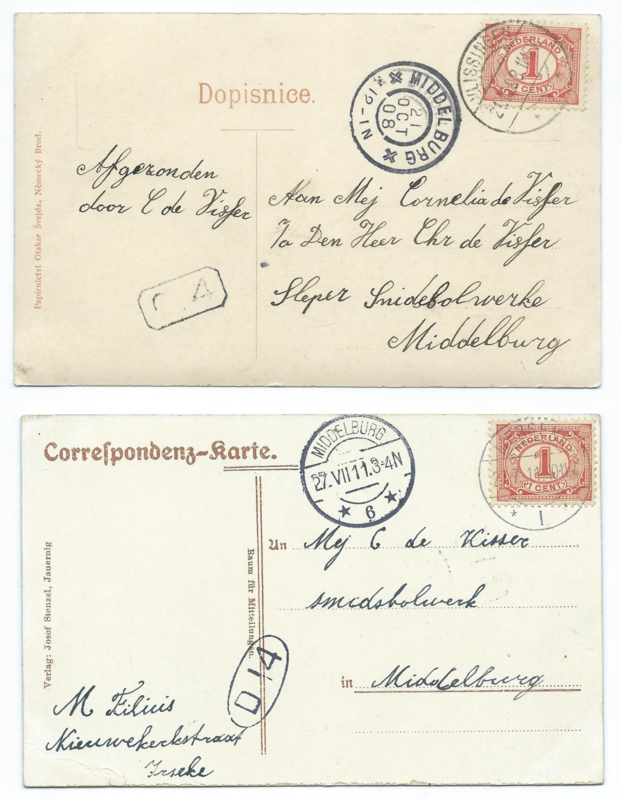 VLISSINGEN
NEDERLAND
1
CENT
MIDDELBURG
21
OCT
08
12-1N
Dopisnice.
Papírnictví Otakar Švejda, Německý Brod.
Afgezonden
door C de Visser
Aan Mej Cornelia de Visser
p/a Den Heer Chr de Visser
Sleper Smidsbolwerke
Middelburg
4
Correspondenz-Karte.
MIDDELBURG
27.VII 11.3-4N
6
NEDERLAND
1
CENT
1
An Mej C de Visser
smidsbolwerk
in Middelburg
Raum für Mitteilungen.
Verlag: Josef Stenzel, Jauernig
D 14
M Filius
Nieuwekerkstraat
Irseke